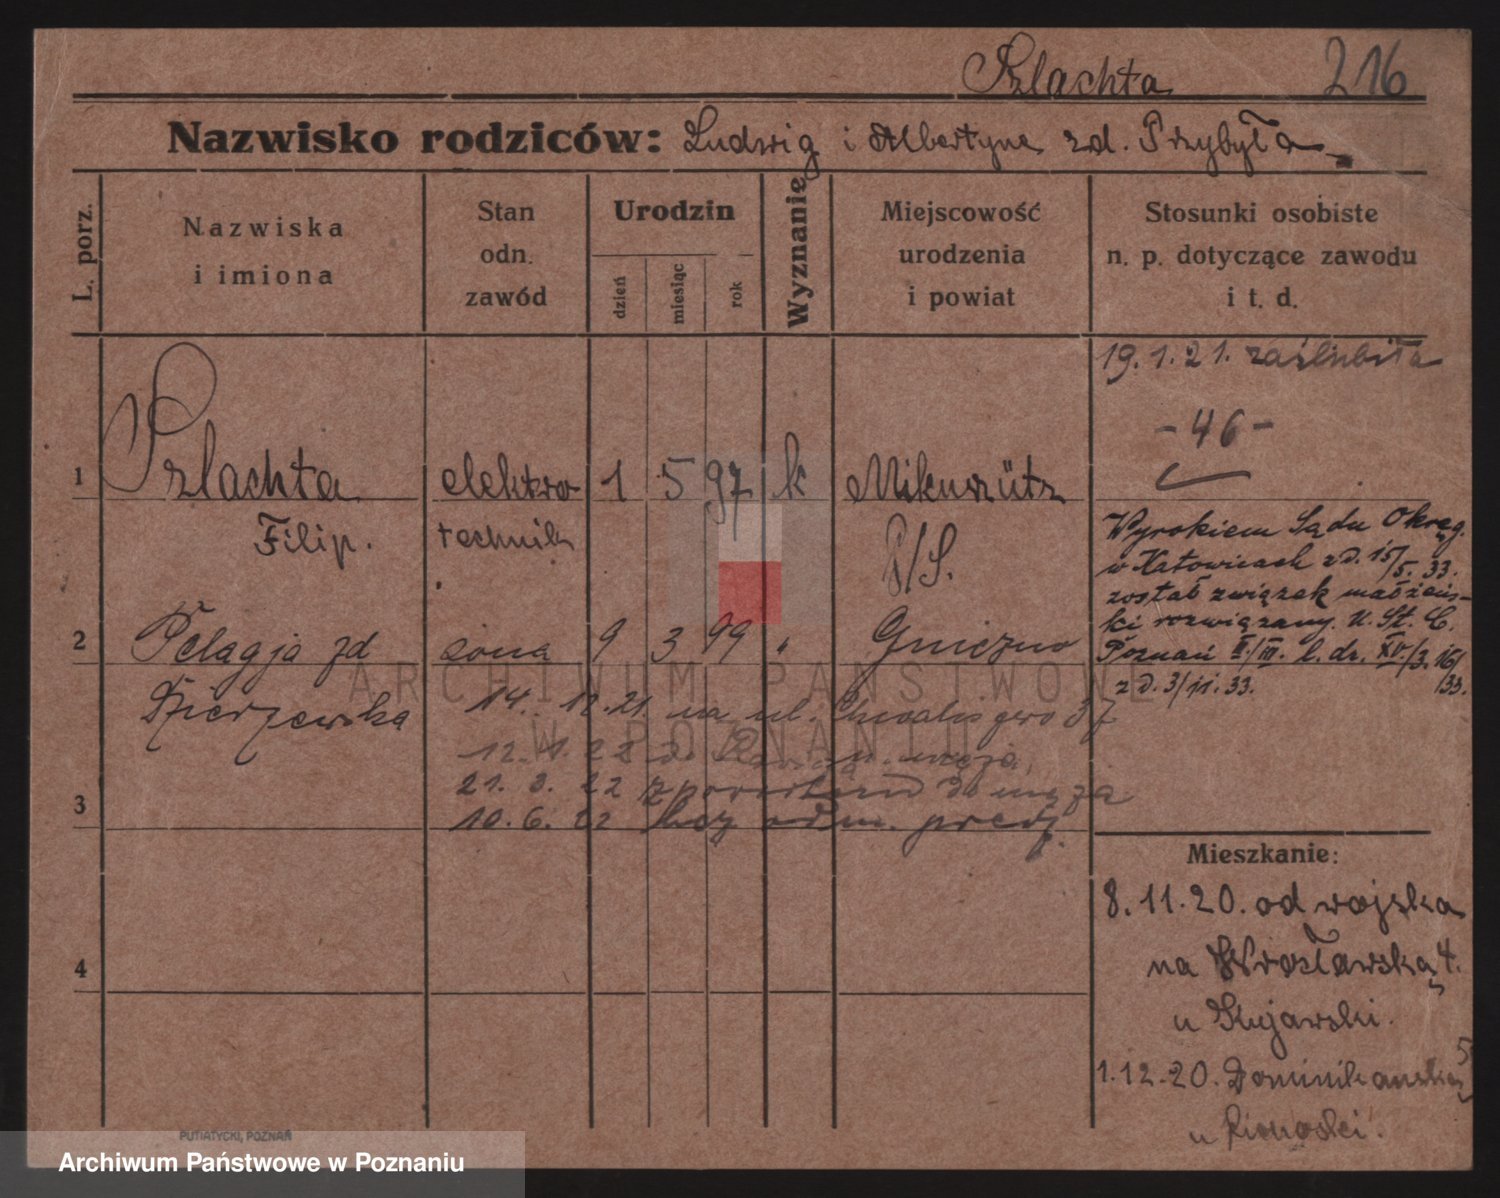 Szlachta 216
Nazwisko rodziców: Ludwig i Albertyna zd. Przybyła
L. porz.
Nazwiska
i imiona
Stan
odn.
zawód
Urodzin
dzień
miesiąc
rok
Wyznanie
Miejscowość
urodzenia
i powiat
Stosunki osobiste
n. p. dotyczące zawodu
i t. d.
19.1.21. zaślubiła
- 46 -
1 Szlachta elektro 1 5 97 k Mikuszütz
Filip. technik /S.
Wyrokiem Sądu Okręg.
w Katowicach z d. 15/5. 33.
został związek małżeńs-
ki rozwiązany. U. St. C.
Poznań II/III. l. dz. XV/3. 16/33.
z d. 3/11. 33.
2 Pelagja zd żona 9 3 99 " Gniezno
Dzierzewska
14. 12. 21 na ul. 37
12. 1. 22 do u. męża
21. 3. 22 z powrotem do męża
3
10. 6. 22 bez odm. przedz.
4
Mieszkanie:
8.11.20. od wojska
na Wrocławską 4.
u Kujawski.
1.12.20. Dominikańska 5
u
PUTIATYCKI, POZNAŃ
ARCHIWUM PAŃSTWOWE
W POZNANIU
Archiwum Państwowe w Poznaniu